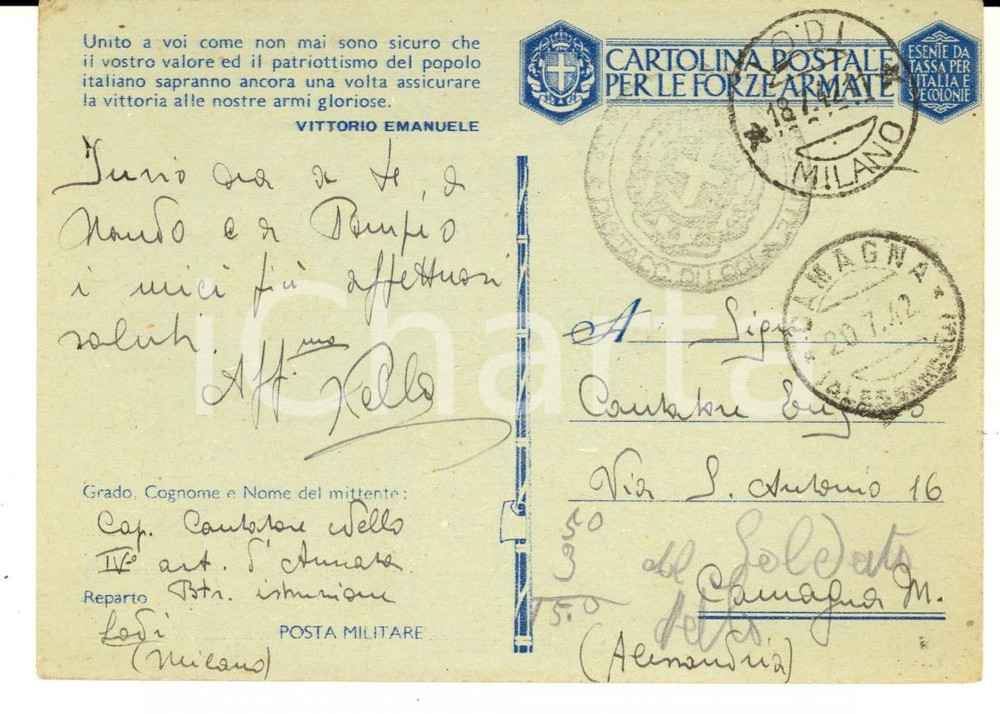 Unito a voi come non mai sono sicuro che
il vostro valore ed il patriottismo del popolo
italiano sapranno ancora una volta assicurare
la vittoria alle nostre armi gloriose.
VITTORIO EMANUELE
CARTOLINA POSTALE
PER LE FORZE ARMATE
ESENTE DA
TASSA PER
L'ITALIA E
SUE COLONIE
LODI
18.7.42
MILANO
CAMAGNA
20.7.42
(ALESSANDRIA)
Invio ora a te, a
Nando e a Pompeo
i miei più affettuosi
saluti.
Aff.mo Nello
Grado, Cognome e Nome del mittente:
Cap. Cantatore Nello
IV° art. d'Armata
Btr. istruzione
Reparto
Lodi
POSTA MILITARE
(Milano)
A
Cantatore
Via S. Antonio 16
Camagna M.
(Alessandria)
50
3
15.0
del Soldato
iCharta